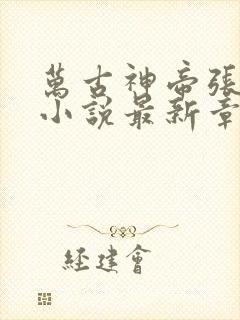 萬古神帝張
小說最新章
經建會